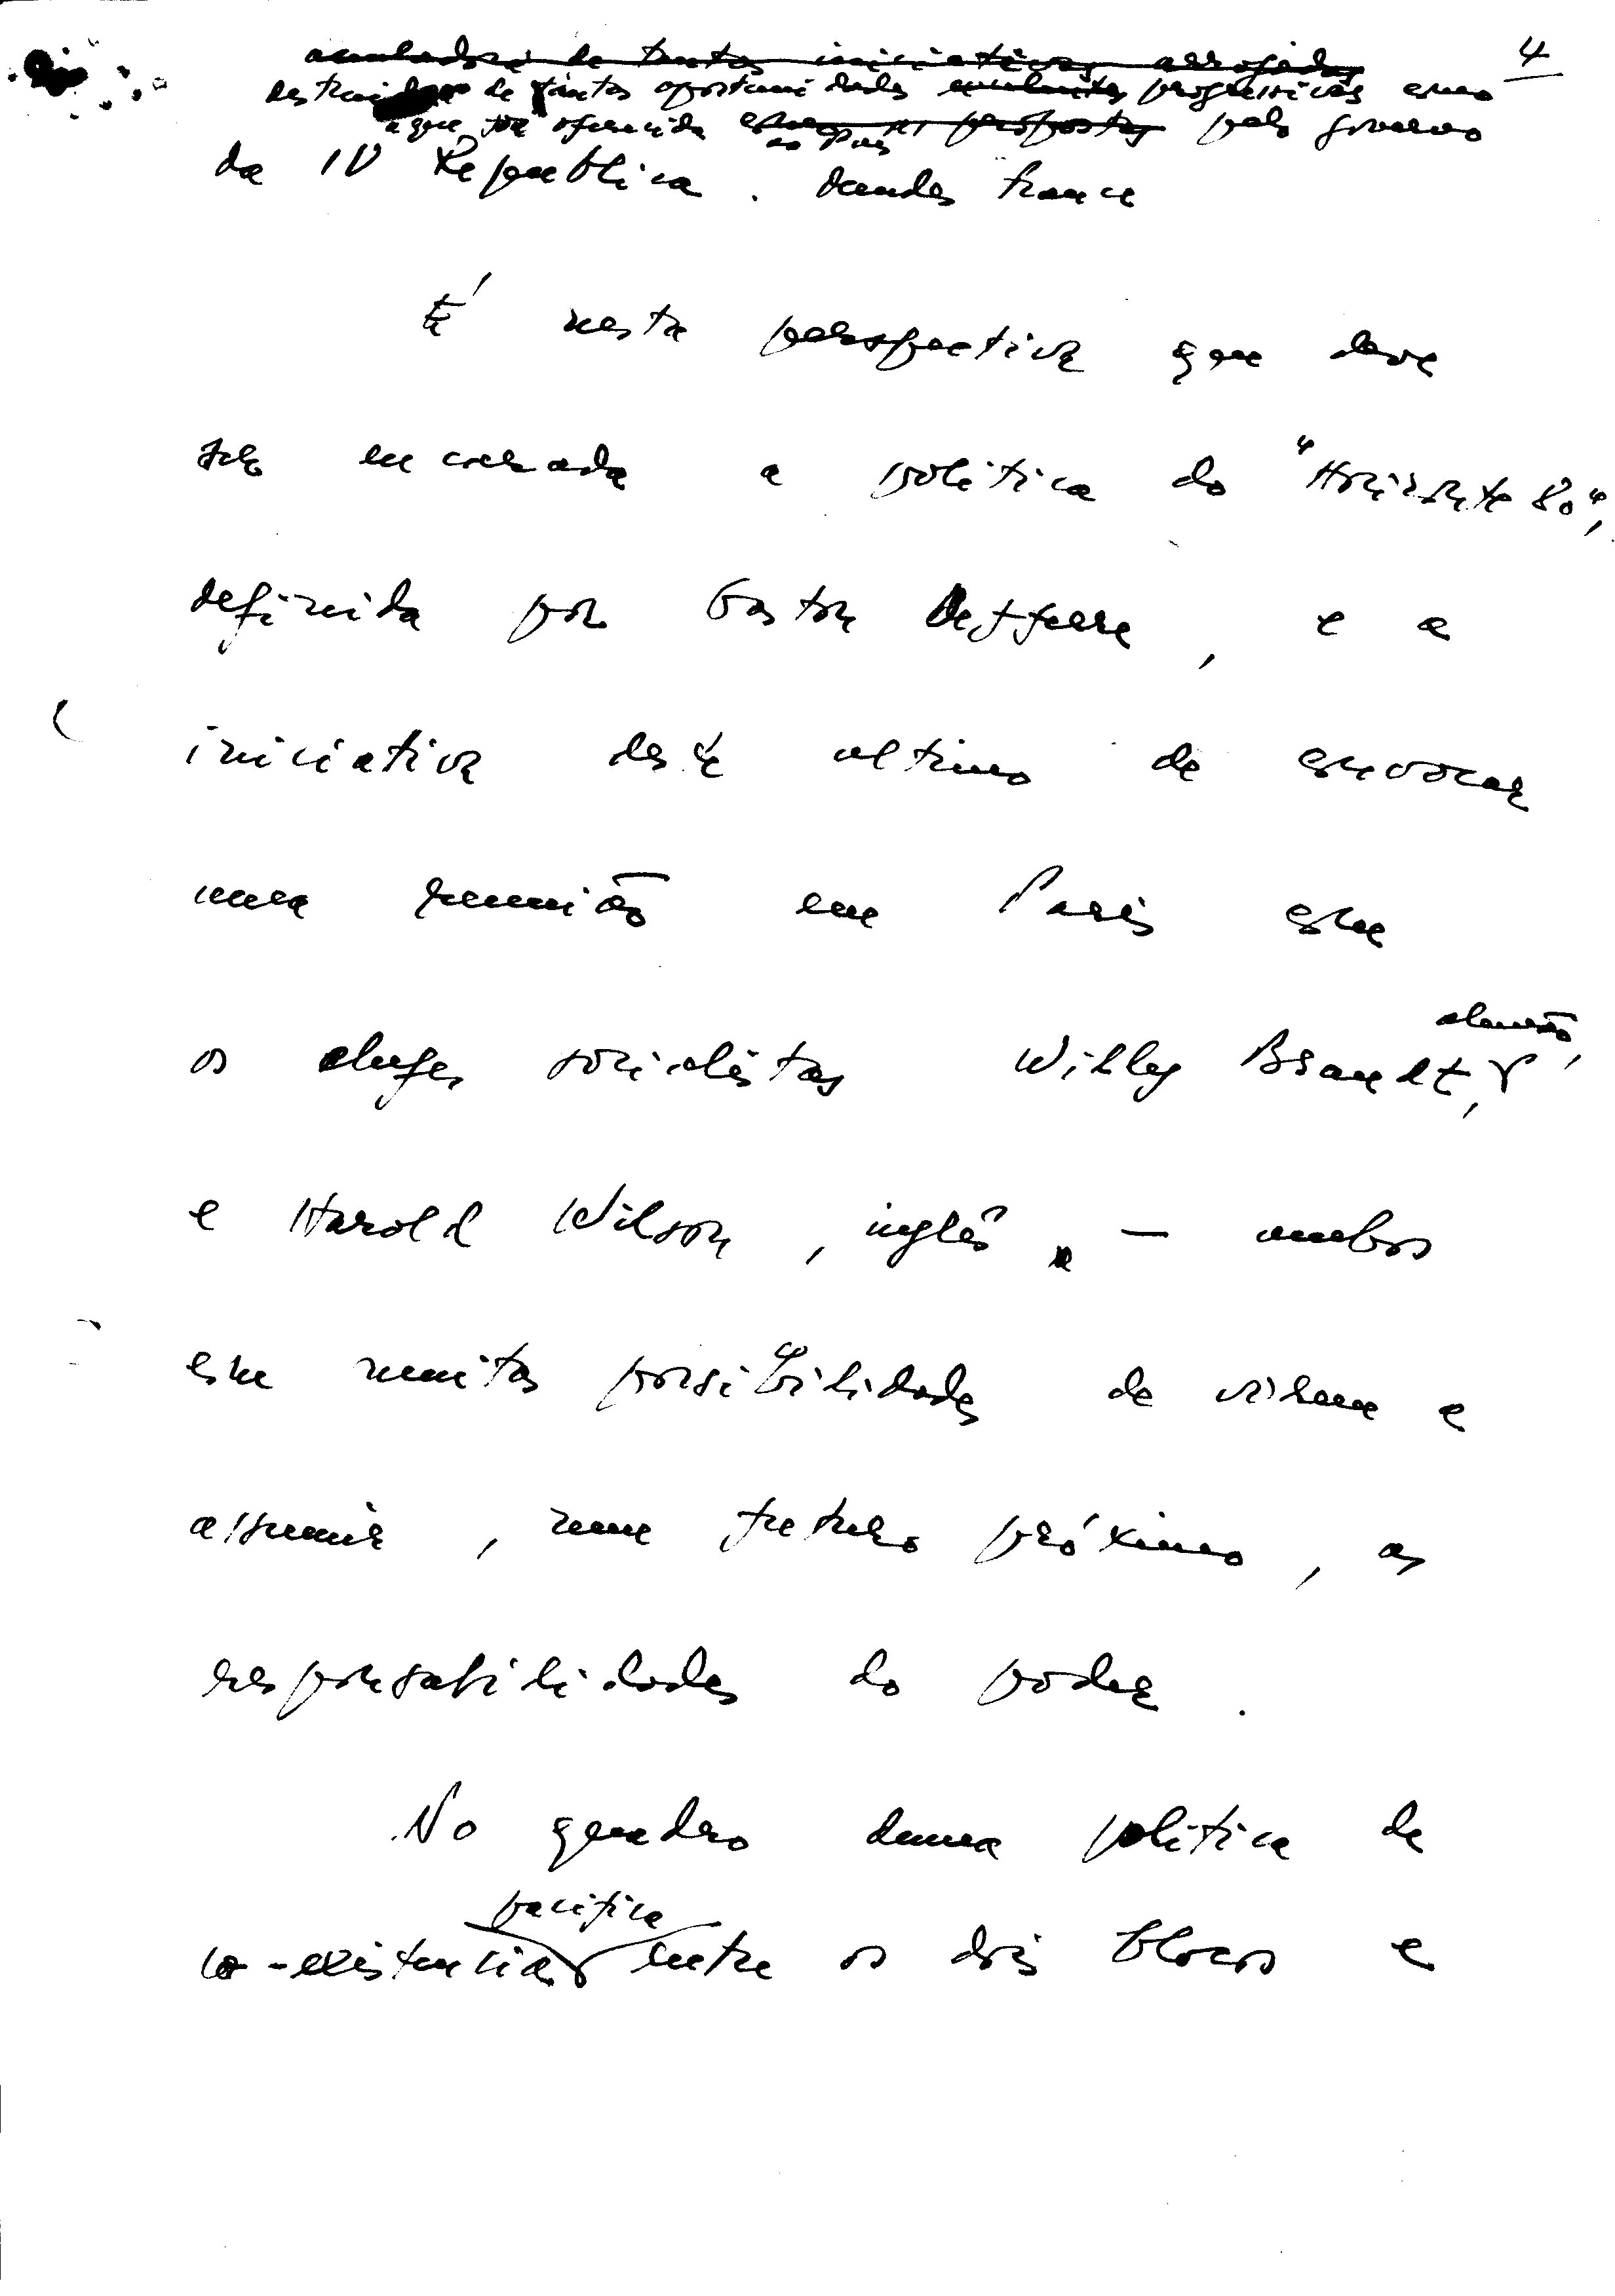 4
anuladora de tantas iniciativas arrojadas
destruidora de tantas oportunidades progressivas como
a que foi oferecida ao País pelo governo
da IV Republica. Mendes France
É nesta perspectiva que deve
ser encarada a politica do "Horizonte 80",
definida por Gaston Defferre, e a
iniciativa deste ultimo de convocar
uma reunião em Paris com
os chefes socialistas Willy Brandt, alemão,
e Harold Wilson, inglês, — ambos
com muitas possibilidades de virem a
assumir, num futuro próximo, as
responsabilidades do poder.
No quadro duma politica de
co-existencia pacifica entre os dois blocos e